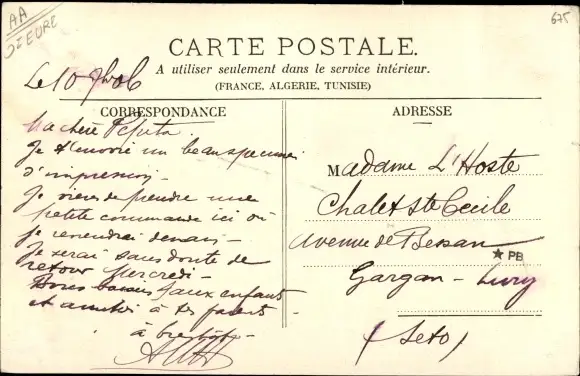 AA
S: EURE
675
CARTE POSTALE.
A utiliser seulement dans le service intérieur.
(FRANCE, ALGERIE, TUNISIE)
Le 10
CORRESPONDANCE
Ma chère
Je t'envoie un beau specimen
d'impression -
Je viens de prendre une
petite commande ici où
je reviendrai demain -
Je serai sans doute de
retour Mercredi -
Bons baisers aux enfants
et à tes parents -
à bientôt -
ADRESSE
Madame L'Hoste
Chalet Ste Cecile
Avenue de
★ PB
Gargan - Livry
(Seto)